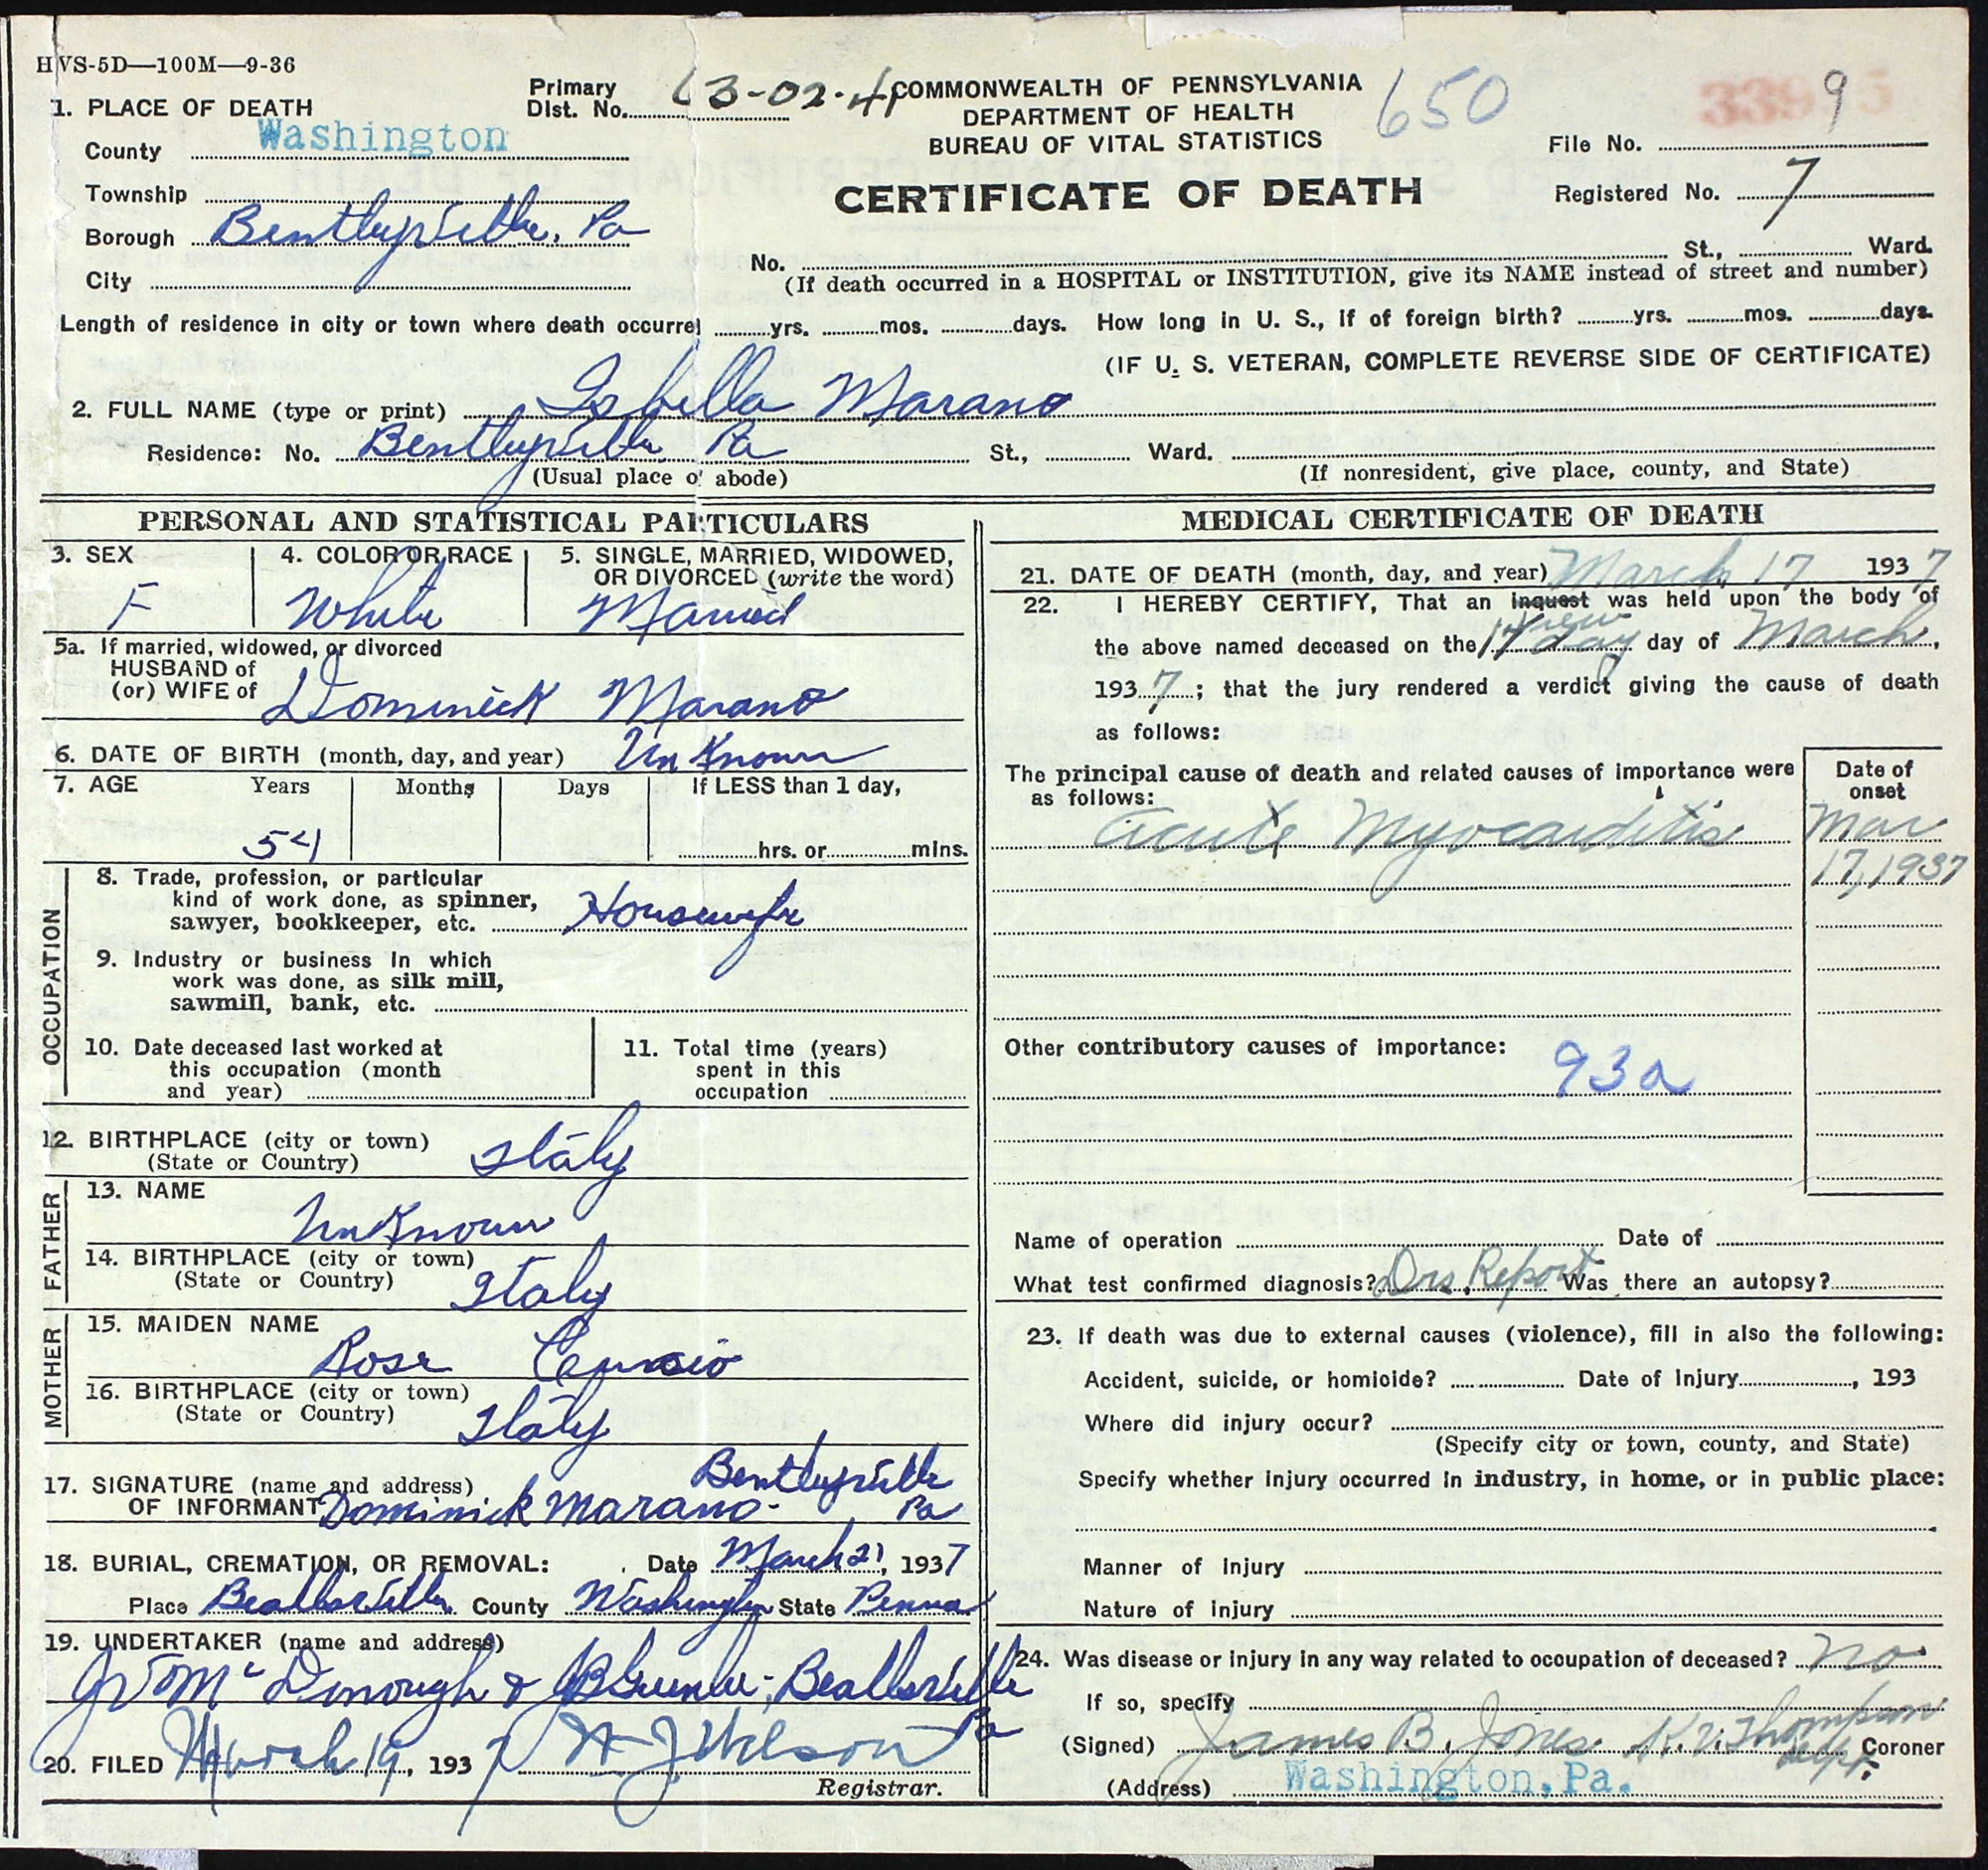 HVS-5D—100M—9-36
Primary
Dist. No. 63-02-41
COMMONWEALTH OF PENNSYLVANIA
DEPARTMENT OF HEALTH
BUREAU OF VITAL STATISTICS
650
File No. 9
Registered No. 7
CERTIFICATE OF DEATH
1. PLACE OF DEATH
County Washington
Township
Borough Bentleyville, Pa
City
No. St., Ward.
(If death occurred in a HOSPITAL or INSTITUTION, give its NAME instead of street and number)
Length of residence in city or town where death occurred yrs. mos. days. How long in U. S., if of foreign birth? yrs. mos. days.
(IF U. S. VETERAN, COMPLETE REVERSE SIDE OF CERTIFICATE)
2. FULL NAME (type or print) Isbella Marano
Residence: No. Bentleyville Pa St., Ward.
(Usual place of abode) (If nonresident, give place, county, and State)
PERSONAL AND STATISTICAL PARTICULARS
3. SEX
F
4. COLOR OR RACE
White
5. SINGLE, MARRIED, WIDOWED,
OR DIVORCED (write the word)
Married
5a. If married, widowed, or divorced
HUSBAND of
(or) WIFE of Dominick Marano
6. DATE OF BIRTH (month, day, and year) UnKnown
7. AGE Years Months Days If LESS than 1 day,
54 hrs. or mins.
OCCUPATION
8. Trade, profession, or particular
kind of work done, as spinner,
sawyer, bookkeeper, etc. Housewife
9. Industry or business in which
work was done, as silk mill,
sawmill, bank, etc.
10. Date deceased last worked at
this occupation (month
and year)
11. Total time (years)
spent in this
occupation
12. BIRTHPLACE (city or town)
(State or Country) Italy
FATHER
13. NAME
UnKnown
14. BIRTHPLACE (city or town)
(State or Country) Italy
MOTHER
15. MAIDEN NAME
Rose
16. BIRTHPLACE (city or town)
(State or Country) Italy
17. SIGNATURE (name and address)
OF INFORMANT Dominick Marano Bentleyville Pa
18. BURIAL, CREMATION, OR REMOVAL: Date March 21, 1937
Place Beallsville County Washington State Penna
19. UNDERTAKER (name and address)
McDonough & Beallsville
Pa
20. FILED March 19, 1937 Wilson
Registrar.
MEDICAL CERTIFICATE OF DEATH
21. DATE OF DEATH (month, day, and year) March 17 1937
22. I HEREBY CERTIFY, That an inquest view was held upon the body of
the above named deceased on the 17 day day of March,
1937; that the jury rendered a verdict giving the cause of death
as follows:
The principal cause of death and related causes of importance were
as follows:
Date of
onset
Acute Myocarditis Mar
17, 1937
Other contributory causes of importance:
93a
Name of operation Date of
What test confirmed diagnosis? Drs. Report Was there an autopsy?
23. If death was due to external causes (violence), fill in also the following:
Accident, suicide, or homicide? Date of injury , 193
Where did injury occur?
(Specify city or town, county, and State)
Specify whether injury occurred in industry, in home, or in public place:
Manner of injury
Nature of injury
24. Was disease or injury in any way related to occupation of deceased? no
If so, specify
(Signed) James B. Jones. K. V. Thompson Coroner
Depy.
(Address) Washington, Pa.